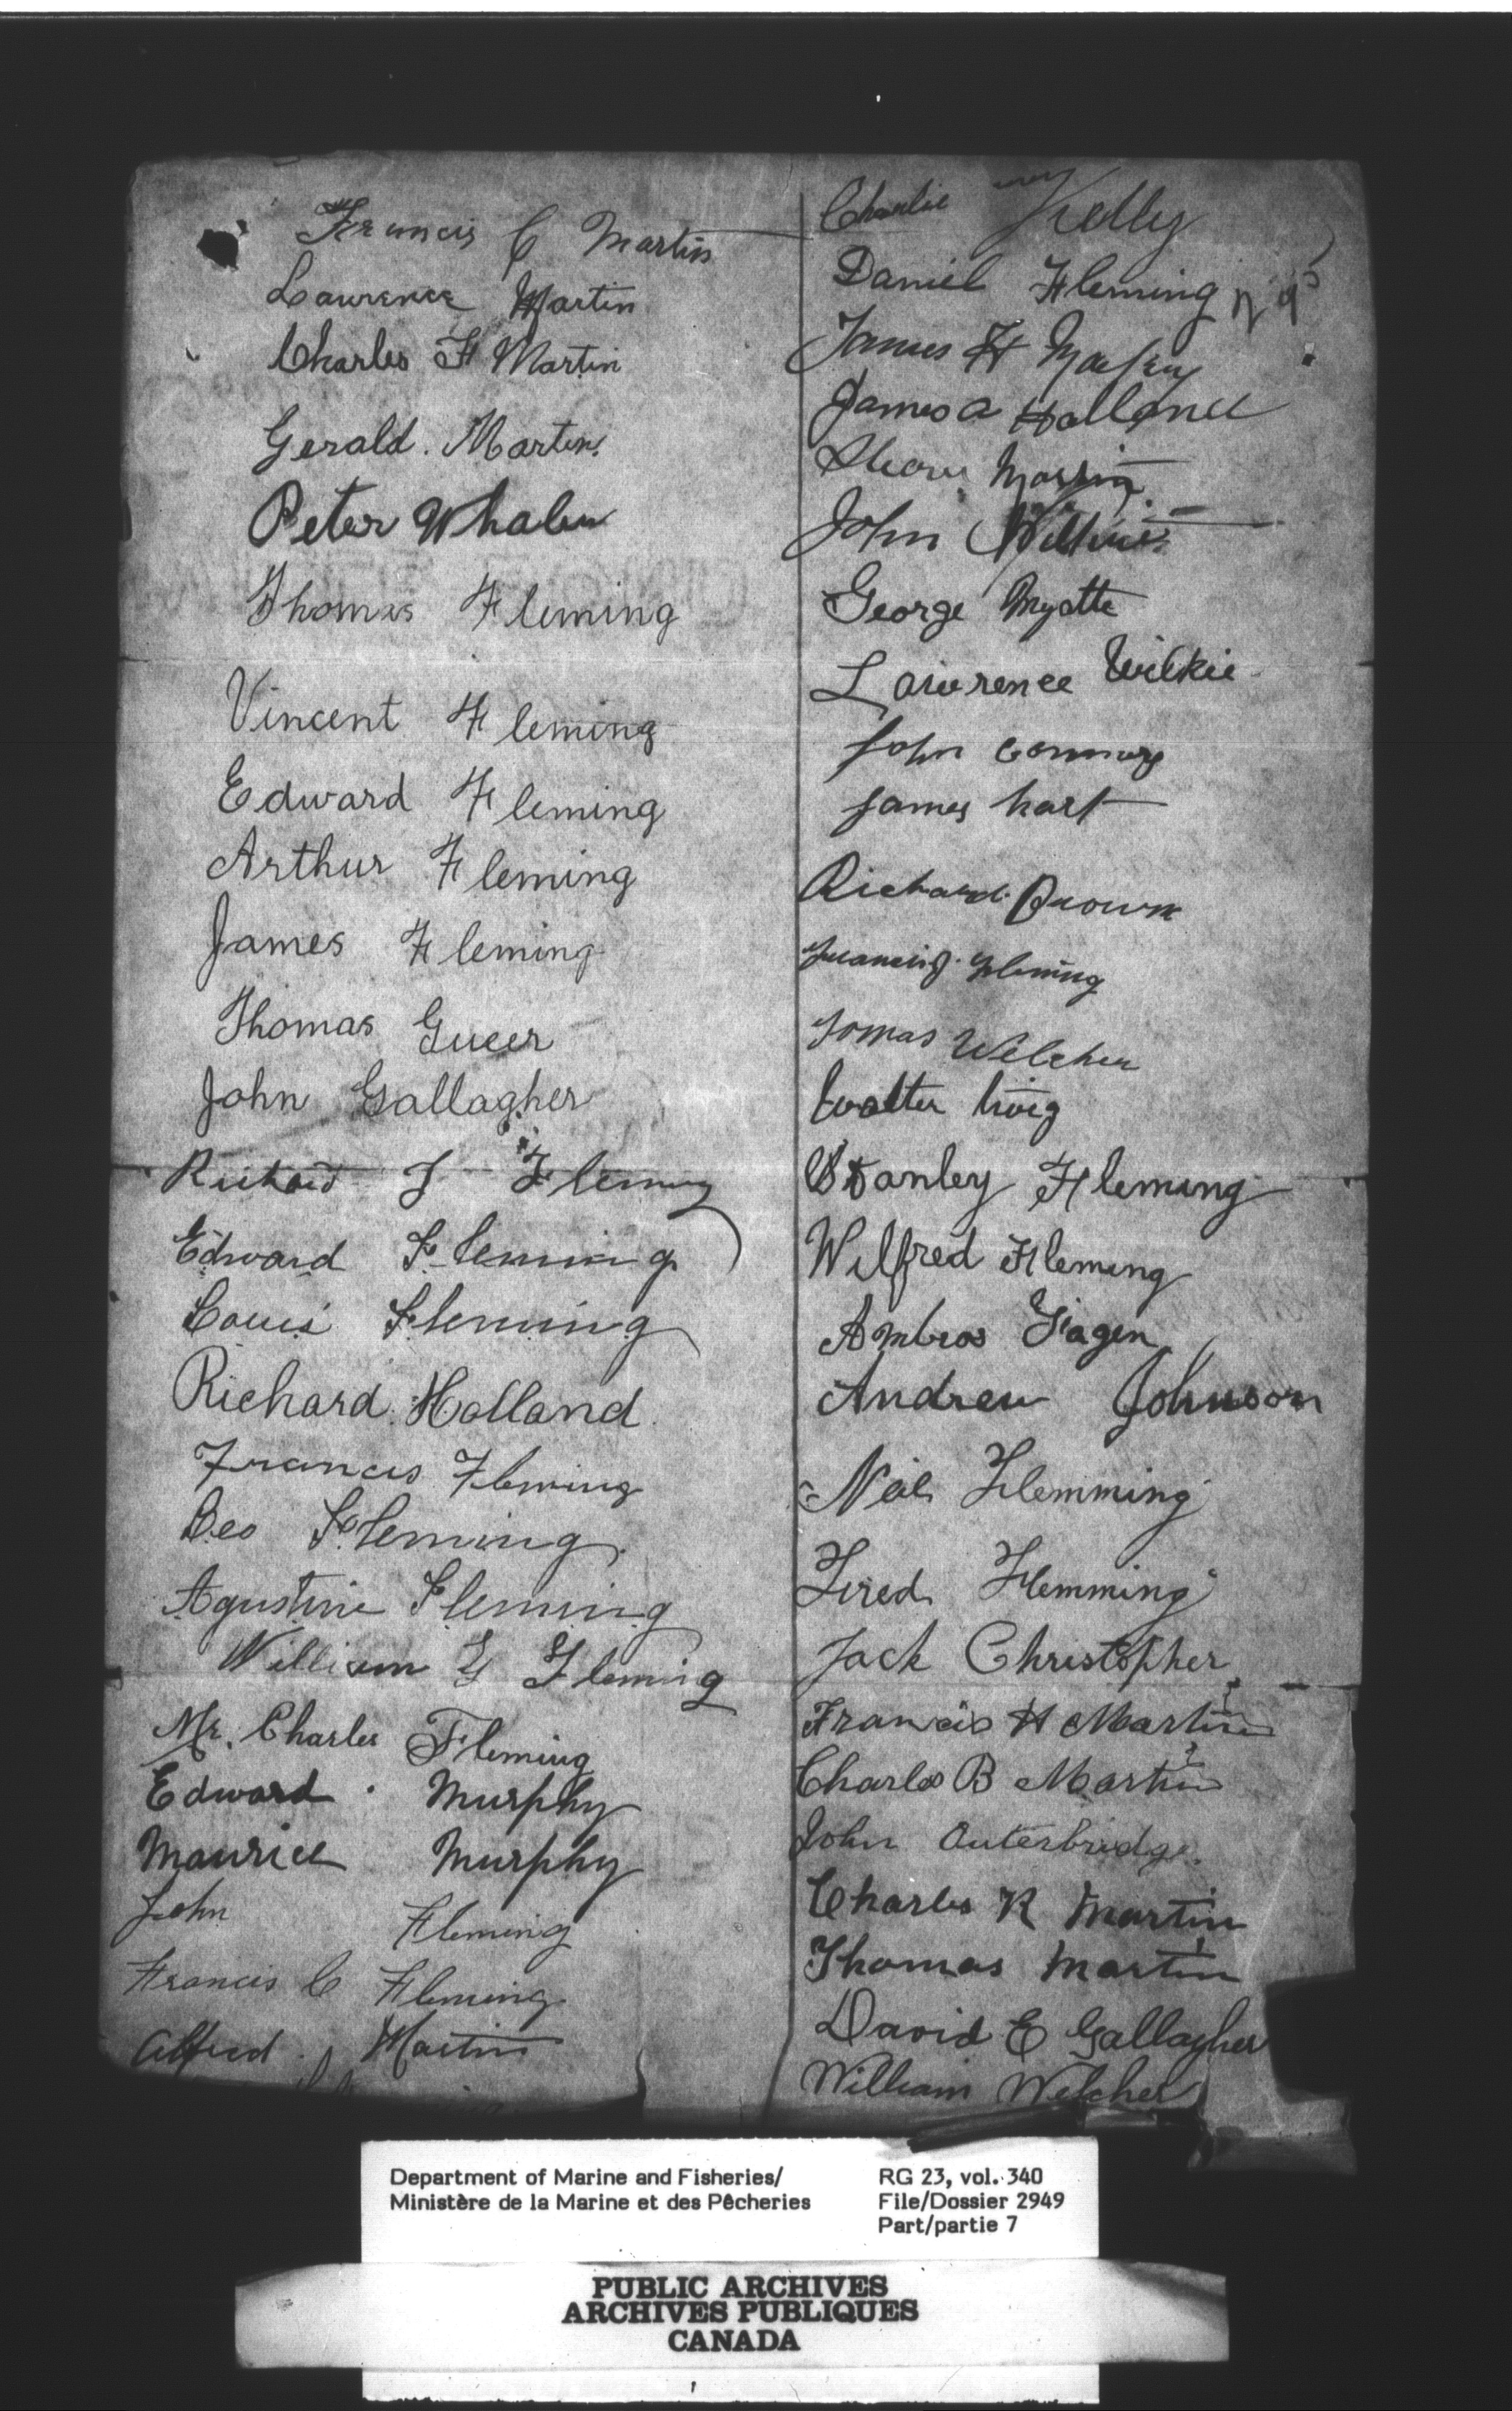 Francis C Martin
Lawrence Martin
Charles F Martin
Gerald. Martin
Peter Whalen
Thomas Fleming
Vincent Fleming
Edward Fleming
Arthur Fleming
James Fleming
Thomas
John Gallagher
Richard J Fleming
Edward Fleming
Louis Fleming
Richard Holland
Francis Fleming
Leo Fleming
Agustine Fleming
William Fleming
Mr. Charles Fleming
Edward Murphy
Maurice Murphy
John Fleming
Francis C Fleming
Alfred Martin
Charlie Kelly
Daniel Fleming
James H
James A Holland
Martin
John
George Myatte
Lawrence Wilkie
John
James hart
Richard Brown
Fleming
Tomas Welcher
Walter
Stanley Fleming
Wilfred Fleming
Ambros
Andrew Johnson
Neil Flemming
Fred Flemming
Jack Christopher
Francis H Martin
Charles B Martin
John Outerbridge
Charles R Martin
Thomas Martin
David E Gallagher
William Welcher
Department of Marine and Fisheries/
Ministère de la Marine et des Pêcheries
RG 23, vol. 340
File/Dossier 2949
Part/partie 7
PUBLIC ARCHIVES
ARCHIVES PUBLIQUES
CANADA